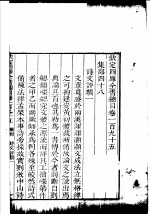 欽定四庫全書總目卷一百九十五
集部四十八
詩文評類一
文章莫盛於兩漢渾渾灝灝文成法立無格律
之可拘建安黃初體裁漸備故論文之說出焉
典論其首也其勒為一書傳於今者則斷自劉
勰鍾嶸勰究文體之源流而評其工拙嶸第作
者之甲乙而溯厥師承為例各殊至皎然詩式
備陳法律孟棨本事詩旁採故實劉攽中山詩